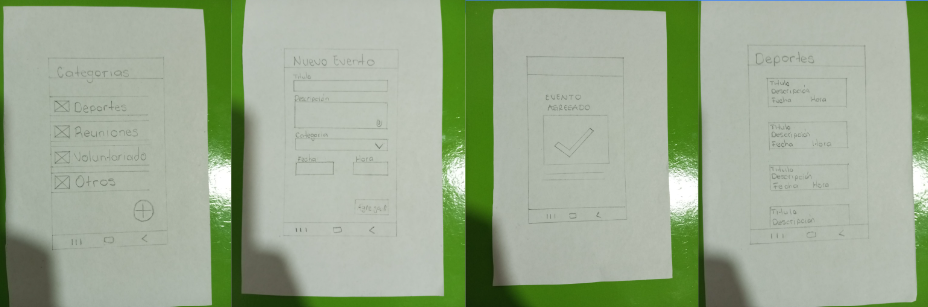 Categorias
Deportes
Reuniones
Voluntariado
Otros
Nuevo Evento
Titulo
Descripción
Categoria
Fecha Hora
Agregar
EVENTO
AGREGADO
Deportes
Titulo
Descripción
Fecha Hora
Titulo
Descripción
Fecha Hora
Titulo
Descripción
Fecha Hora
Titulo
Descripcion